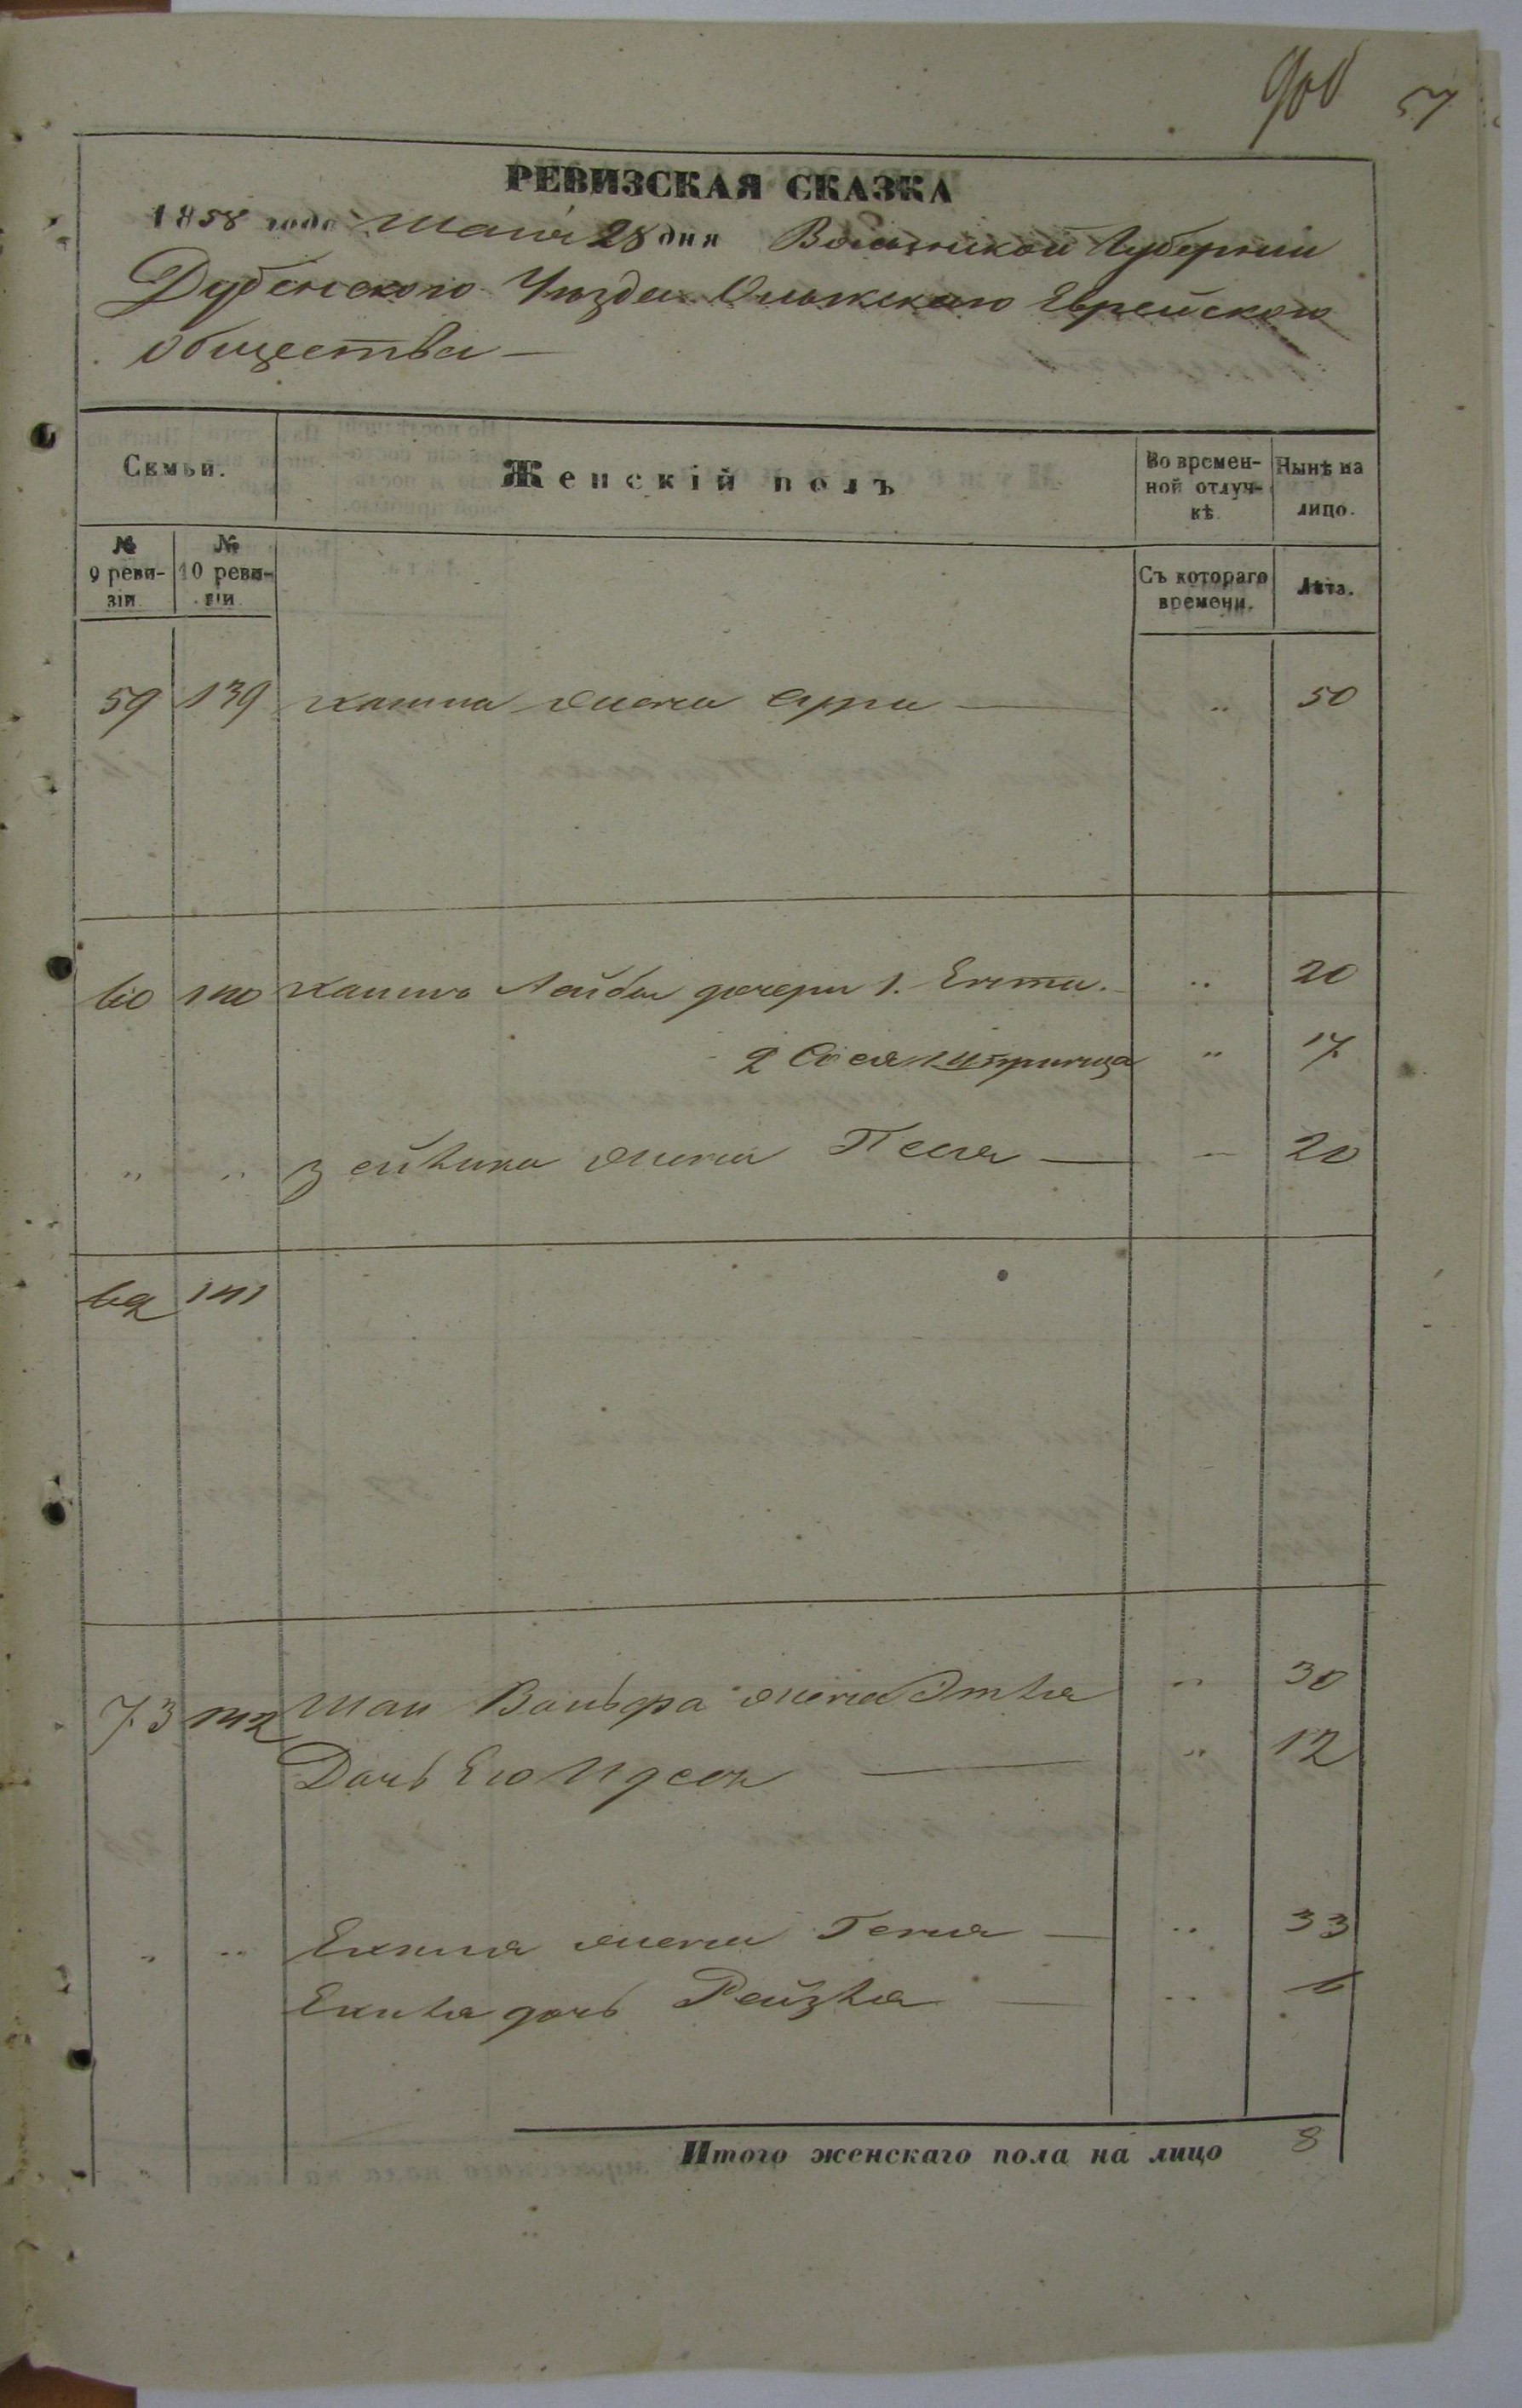 57
РЕВИЗСКАЯ СКАЗКА
1858 года Маія 28 дня Волынской Губерніи
Дубенского Уѣзда Олыкского Еврейского
общества —
Семьи.
Женскій полъ
Во времен-
ной отлуч-
кѣ.
Нынѣ на
лицо.
№
9 реви-
зіи.
№
10 реви-
зіи.
Съ котораго
времени.
Лѣта.
59 139 жена Сура — " 50
60 140 Лейбы дочери 1. Ента. " 20
2 " 17
" " 3 жена Песя — — 20
62 141
73 142 жена Этля " 30
Дочь Его Идеся — " 12
" " жена Геня — " 33
дочь Рейзля — " 6
Итого женскаго пола на лицо 8